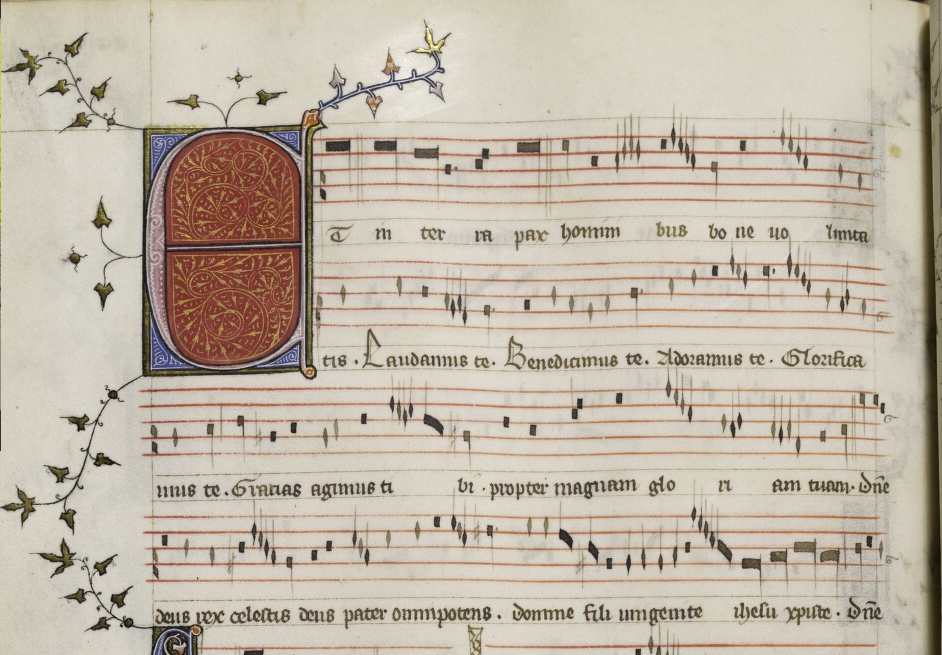 ET in ter ra pax homini bus bo ne uo lunta
tis. Laudamus te. Benedicimus te. Adoramus te. Glorifica
mus te. Gratias agimus ti bi. propter magnam glo ri am tuam. dñe
deus rex celestis deus pater omnipotens. domine fili unigenite ihesu xpiste. dñe